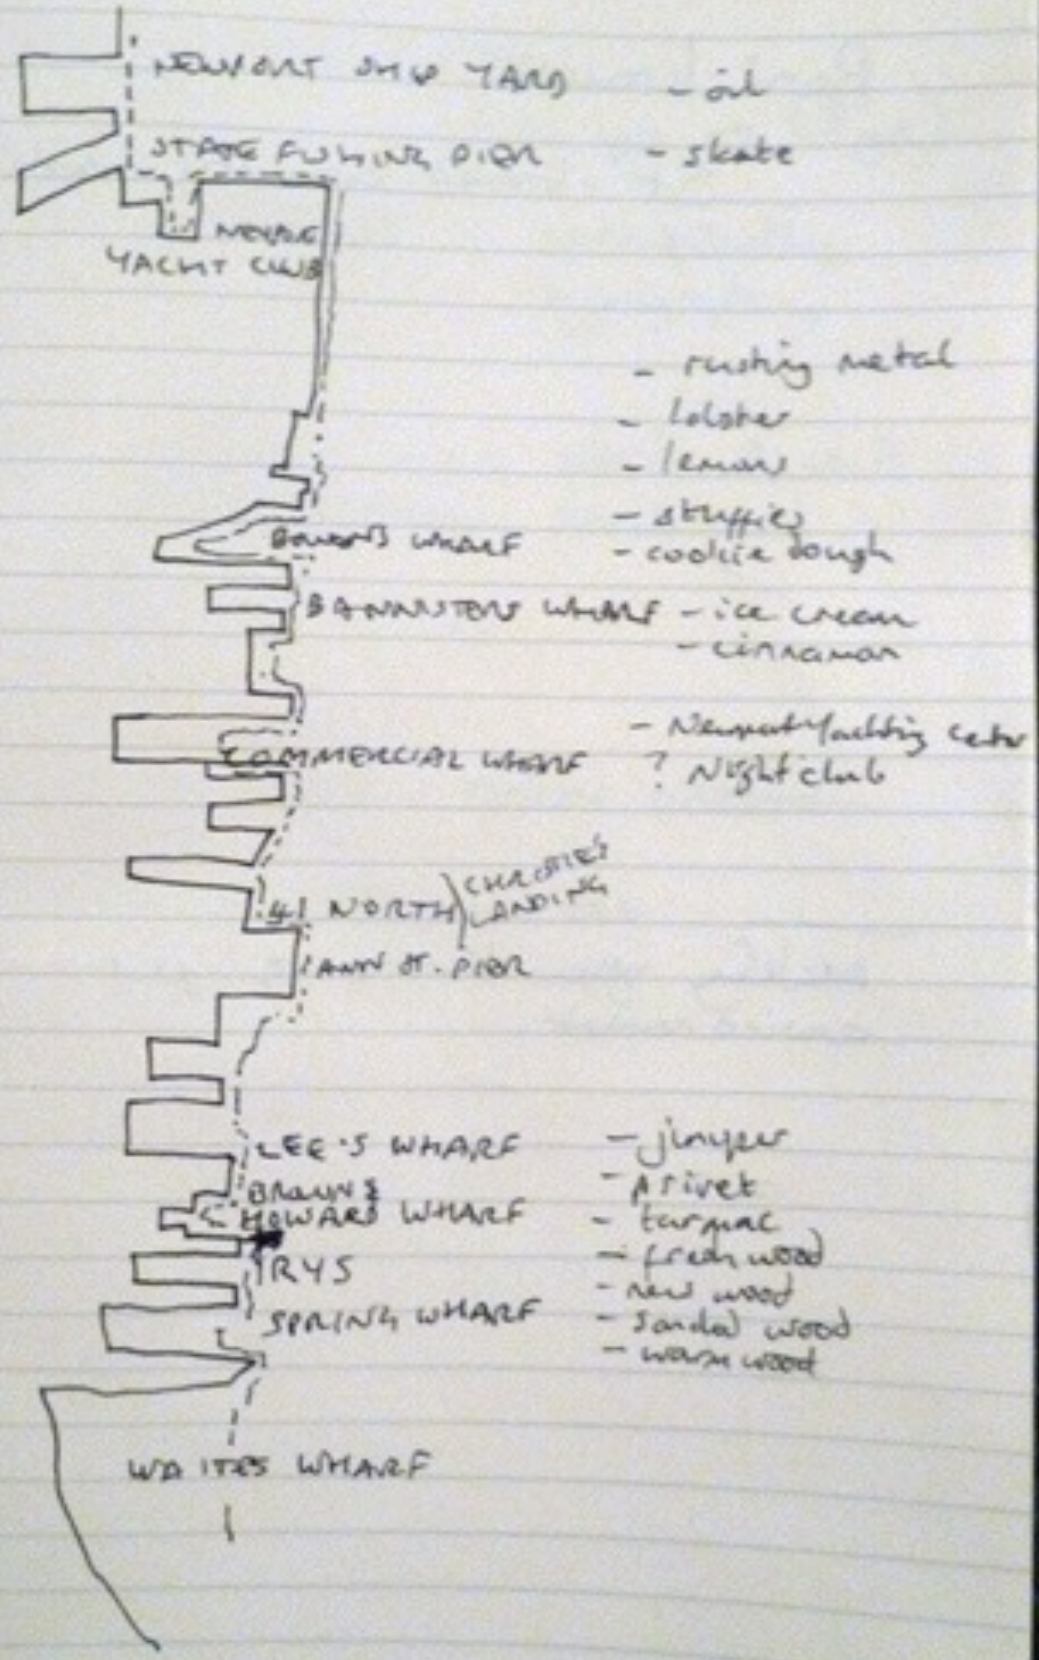 NEWPORT SHIP YARD - oil
STATE FISHING PIER - skate
YACHT CLUB
- rusting metal
- lobster
- lemons
- stuffies
BOWEN'S WHARF - cookie dough
BANNISTERS WHARF - ice cream
- cinnamon
- Newport Yachting Center
COMMERCIAL WHARF ? Nightclub
41 NORTH CHRISTIE'S LANDING
ANN ST. PIER
LEE'S WHARF - juniper
- privet
BROWN &
HOWARD WHARF - tarmac
- fresh wood
IRYS
- new wood
SPRING WHARF - sandal wood
- warm wood
WAITES WHARF